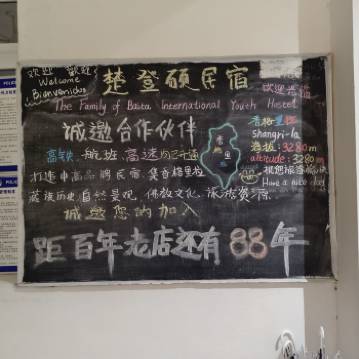 欢迎 欢迎
Welcome
Bienvenidos
楚登硕民宿
The Family of Basta International Youth Hostel
诚邀合作伙伴
高铁 航班 高速 已开通
香格里拉
shangri-la
海拔:3280m
altitude:3280m
祝您旅途愉快
Have a nice day
打造中高品 民宿 集香格里拉
藏族历史 自然景观 佛教文化 旅游资源
诚邀您的加入
距百年老店还有88年